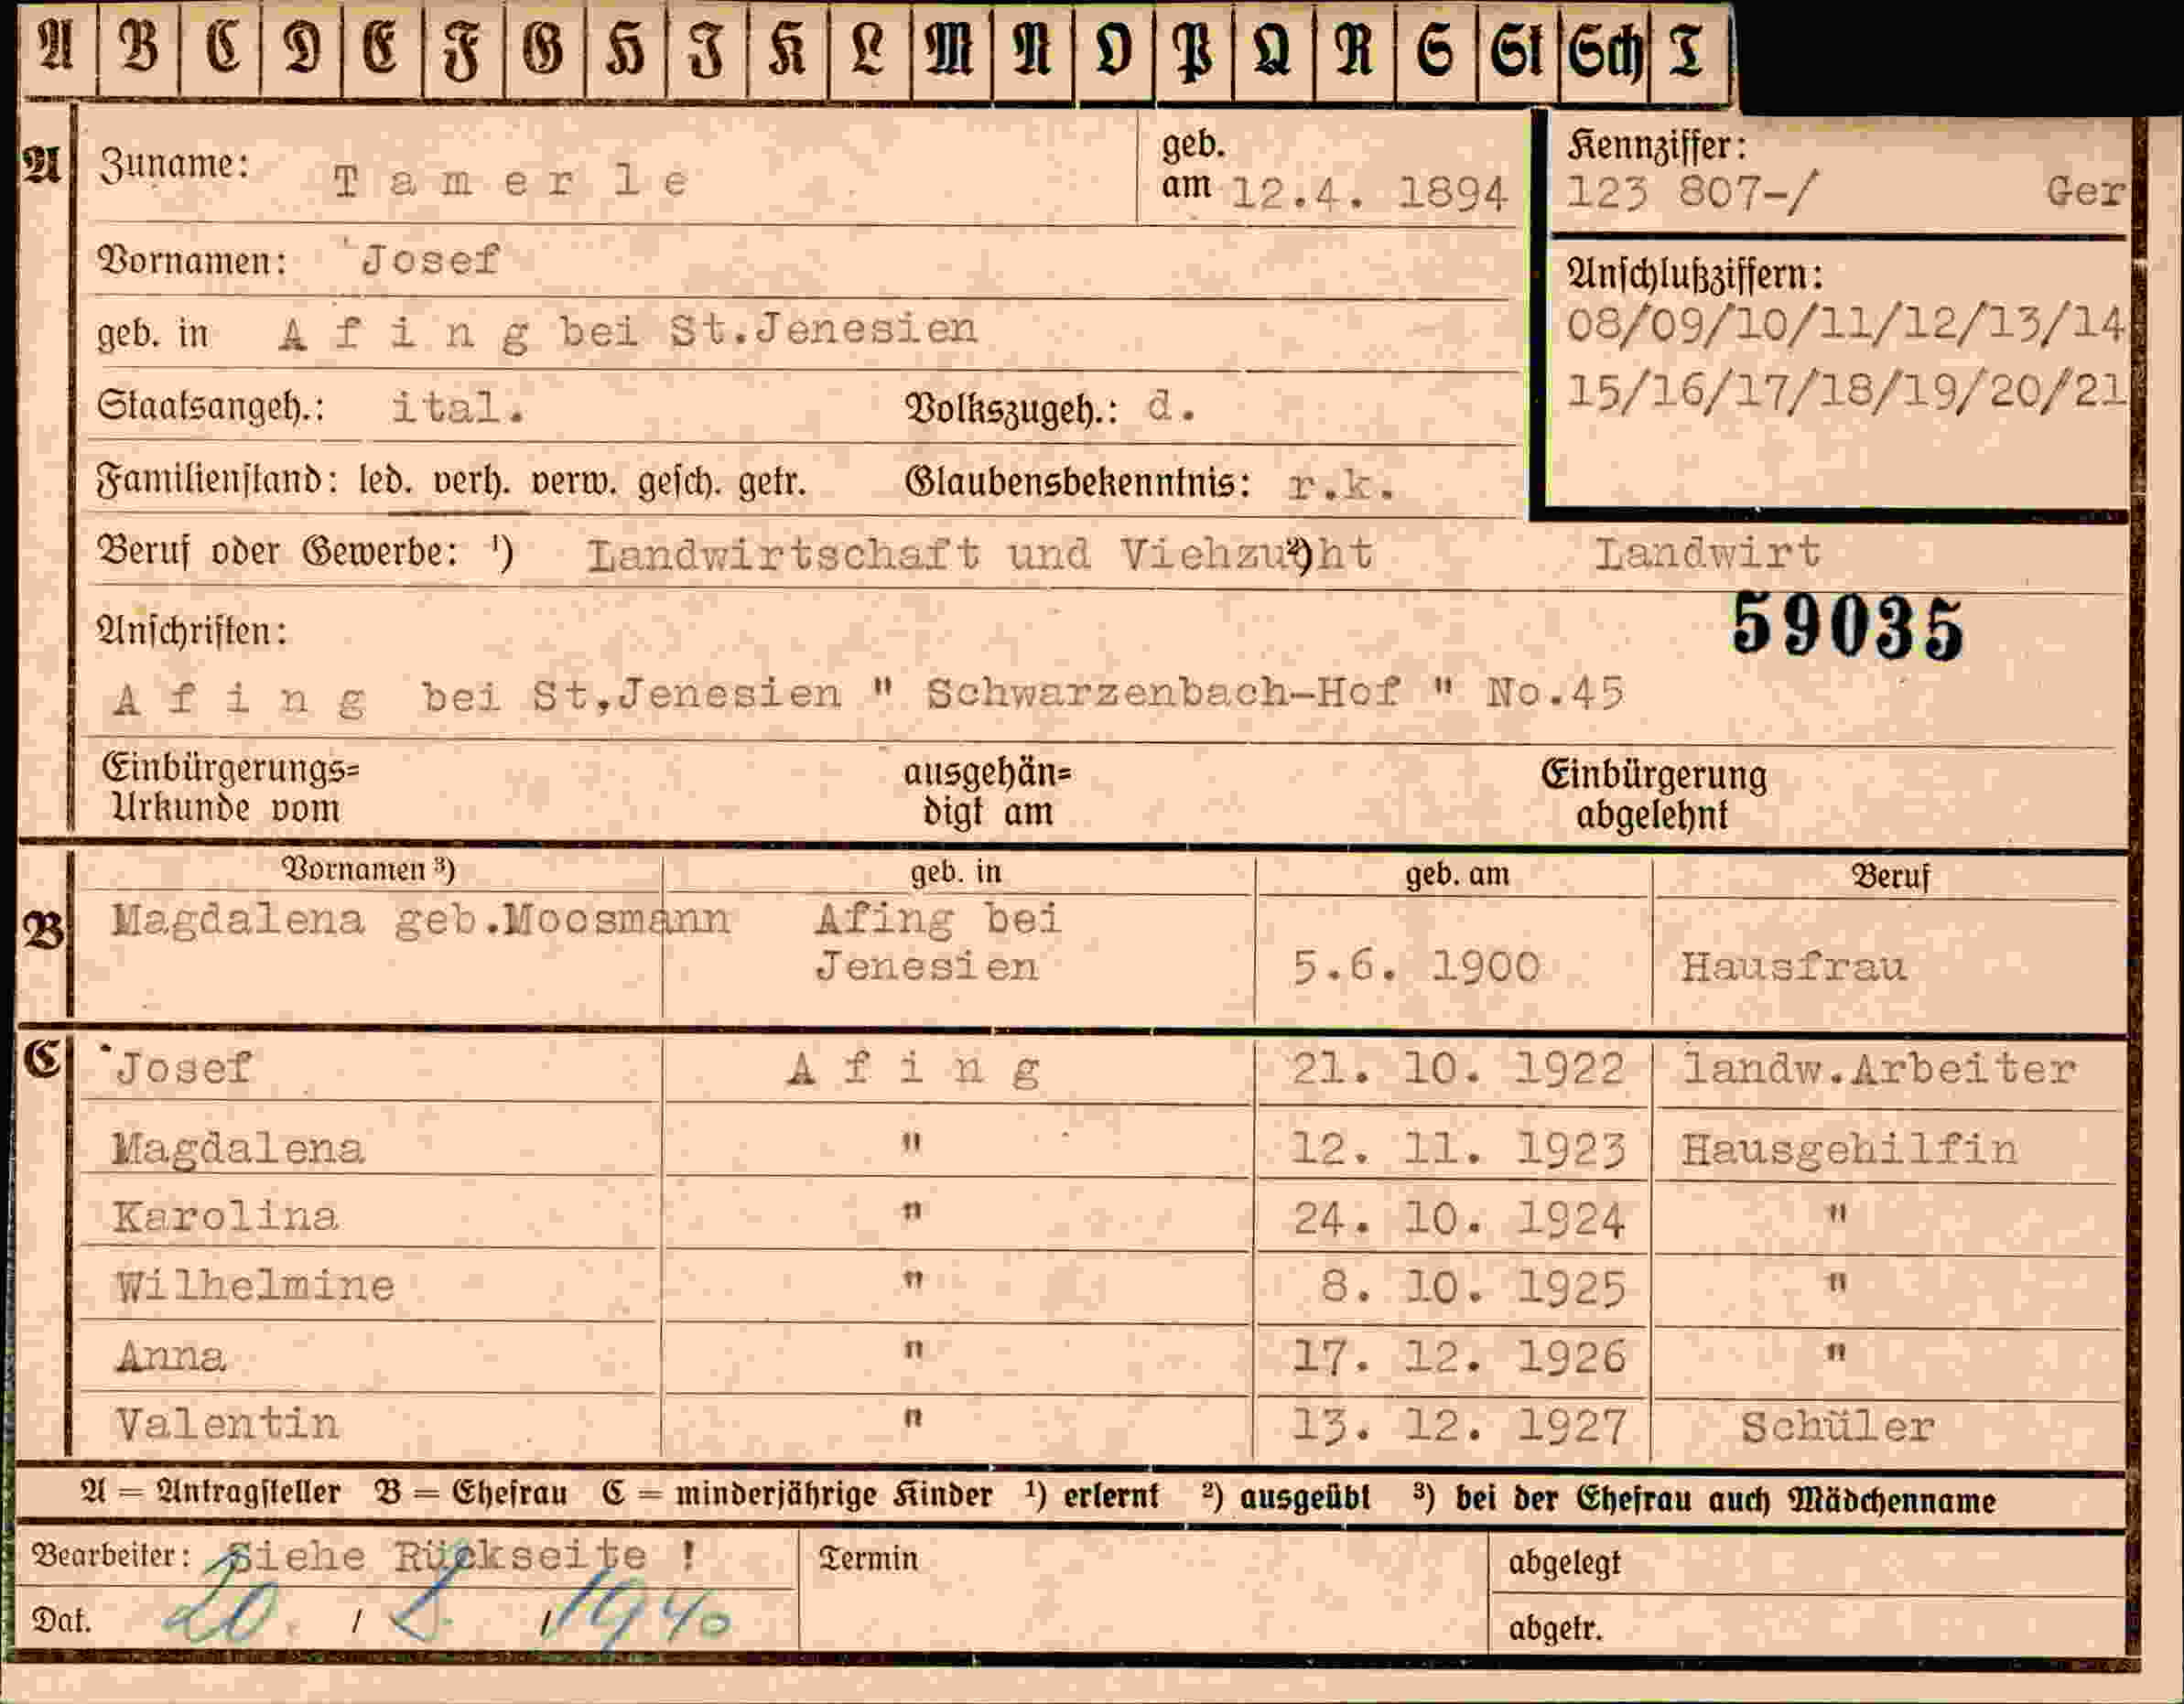 A B C D E F G H I K L M N O P Q R S St Sch T
A Zuname: Tamerle geb. am 12.4. 1894
Kennziffer:
123 807-/ Ger
Vornamen: Josef
Anschlußziffern:
08/09/10/11/12/13/14
15/16/17/18/19/20/21
geb. in Afing bei St.Jenesien
Staatsangeh.: ital. Volkszugeh.: d.
Familienstand: led. verh. verw. gesch. getr. Glaubensbekenntnis: r.k.
Beruf oder Gewerbe: ¹) Landwirtschaft und Viehzucht ²) Landwirt
59035
Anschriften:
Afing bei St,Jenesien " Schwarzenbach-Hof " No.45
Einbürgerungs= ausgehän= Einbürgerung
Urkunde vom digt am abgelehnt
Vornamen ³) geb. in geb. am Beruf
B Magdalena geb.Moosmann Afing bei
Jenesien 5.6. 1900 Hausfrau
C Josef Afing 21. 10. 1922 landw.Arbeiter
Magdalena " 12. 11. 1923 Hausgehilfin
Karolina " 24. 10. 1924 "
Wilhelmine " 8. 10. 1925 "
Anna " 17. 12. 1926 "
Valentin " 13. 12. 1927 Schüler
A = Antragsteller B = Ehefrau C = minderjährige Kinder ¹) erlernt ²) ausgeübt ³) bei der Ehefrau auch Mädchenname
Bearbeiter: Siehe Rückseite ! Termin abgelegt
Dat. 20. / 2. / 1940 abgetr.